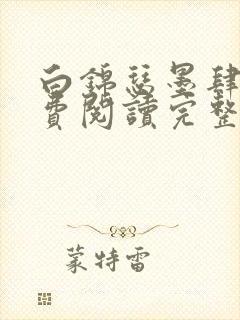 白錦瑟墨肆
費閱讀完整
蒙特雷